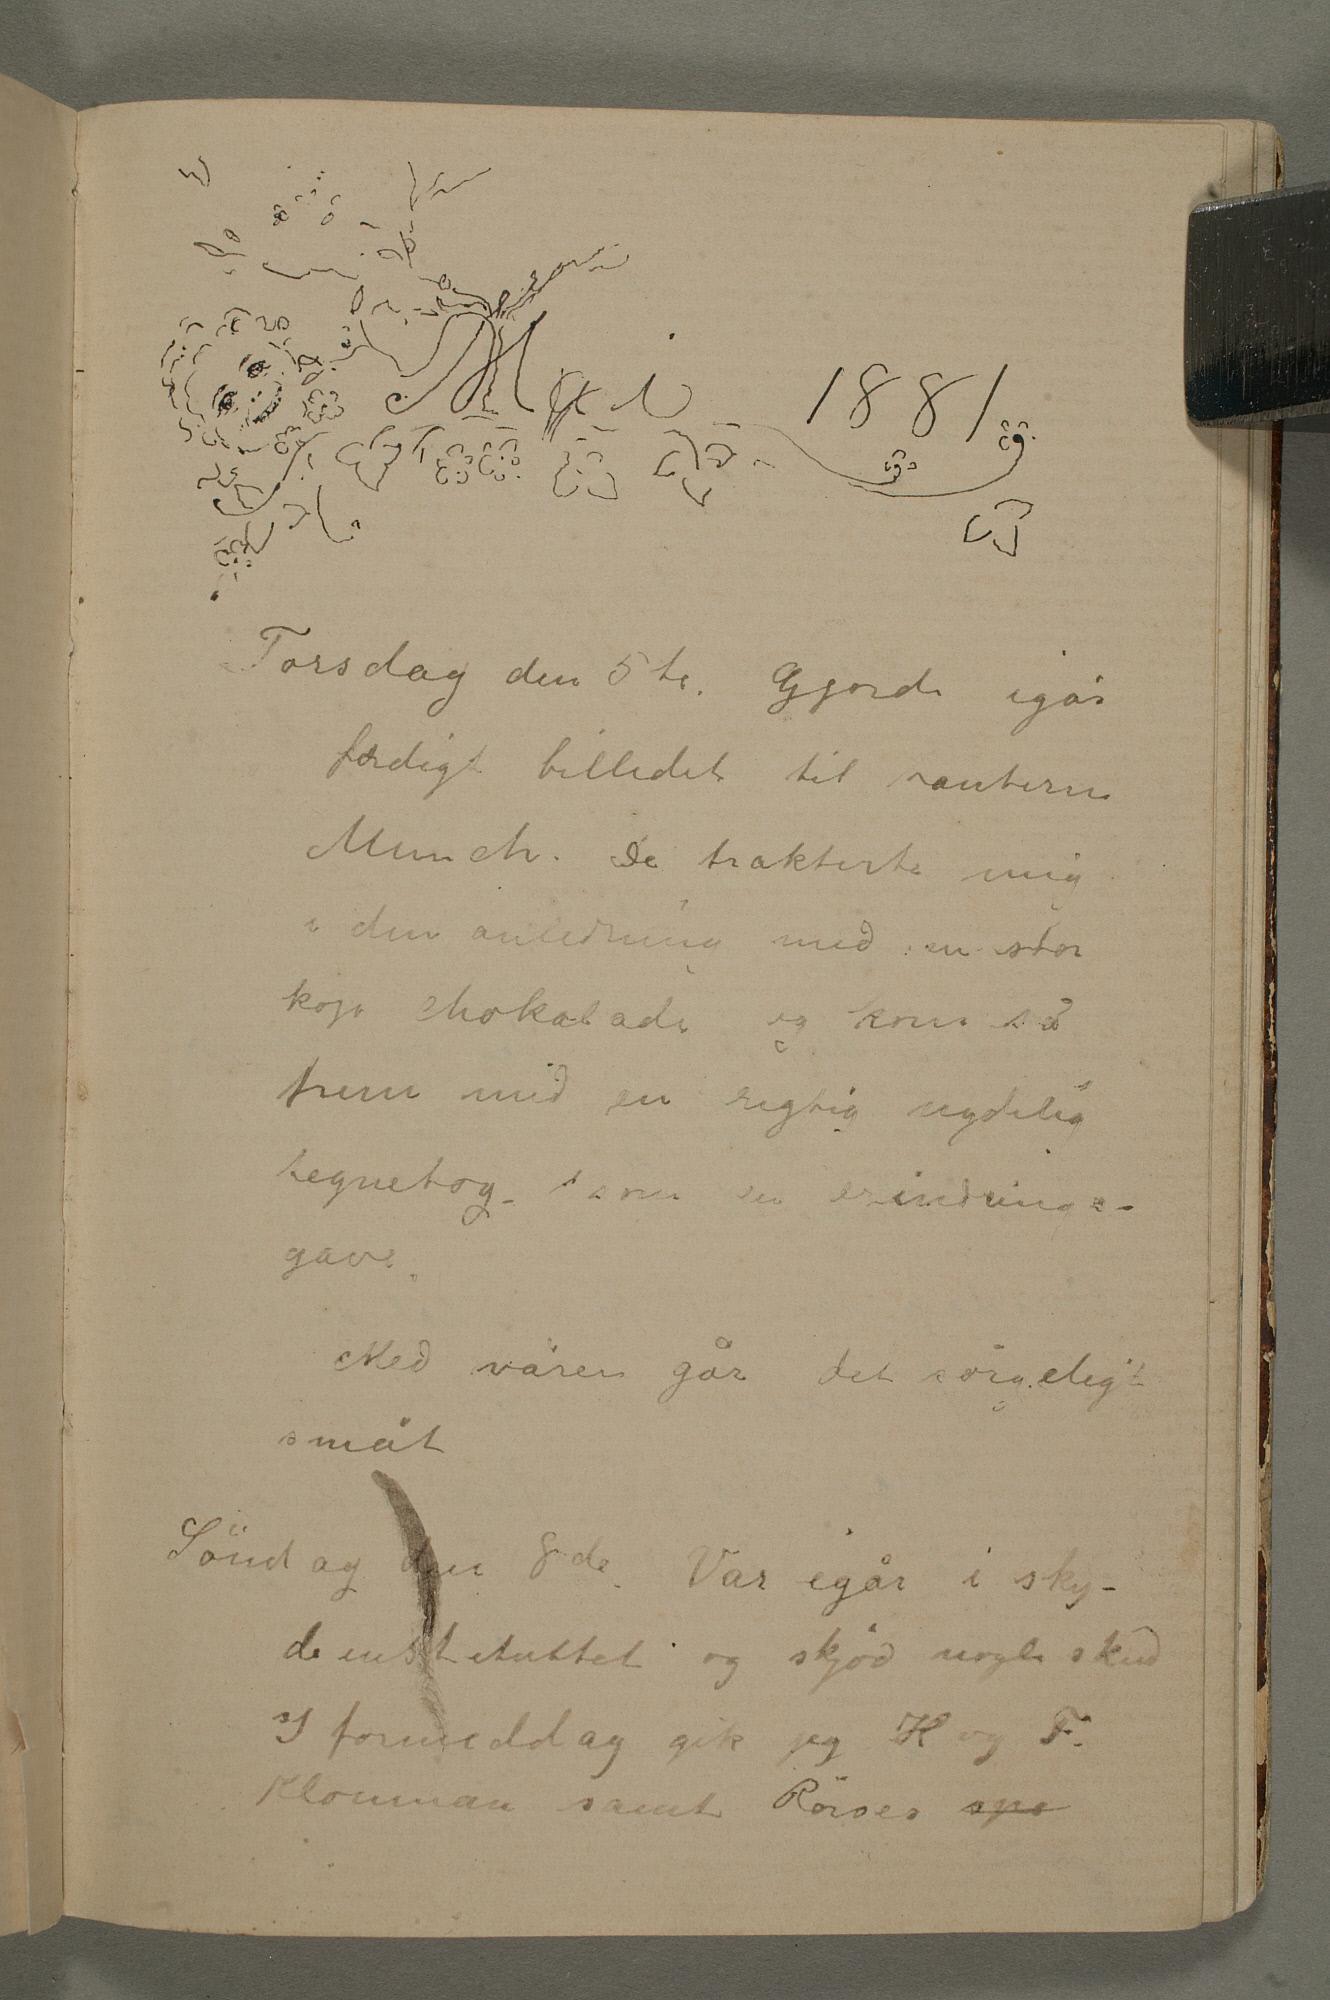 Mai 1881
Torsdag den 5te. Gjorde igår
færdigt billedet til tanterne
Munch. De trakterte mig
i den anledning med en stor
kop chokolade og kom så
frem med en rigtig nydelig
tegnebog som en erindrings-
gave.
Med våren går det sörgeligt
småt
Söndag den 8de. Var igår i sky-
deinstituttet og skjöd nogle skud
I formeddag gik jeg H og F.
Klouman samt Rörses spa